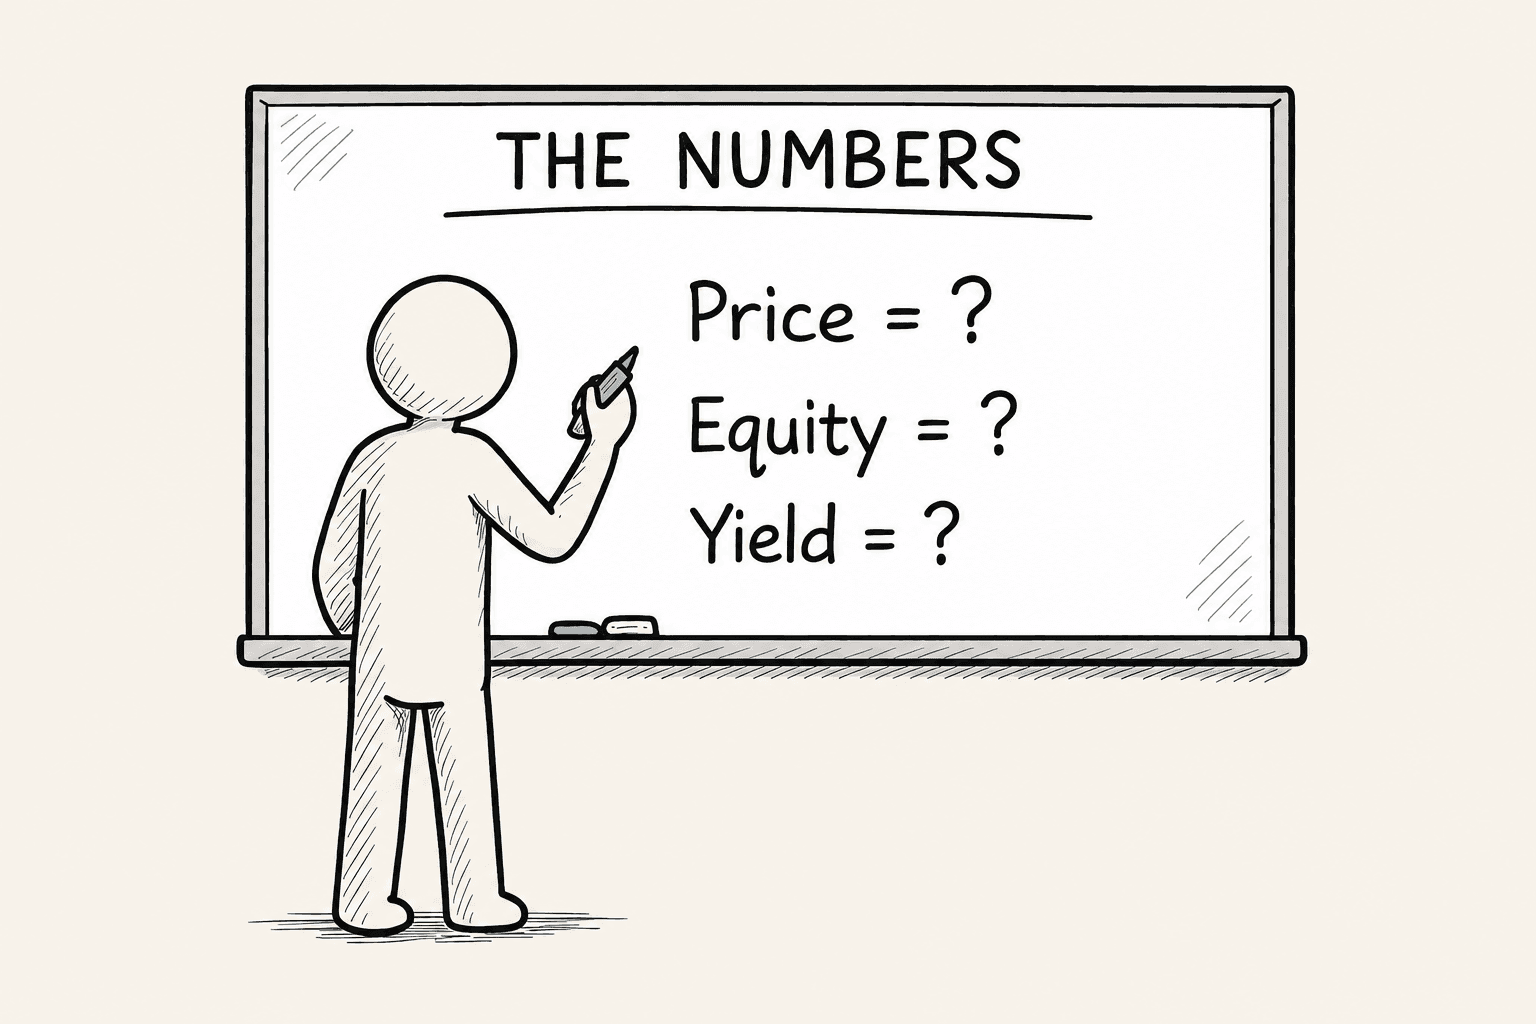 THE NUMBERS
Price = ?
Equity = ?
Yield = ?